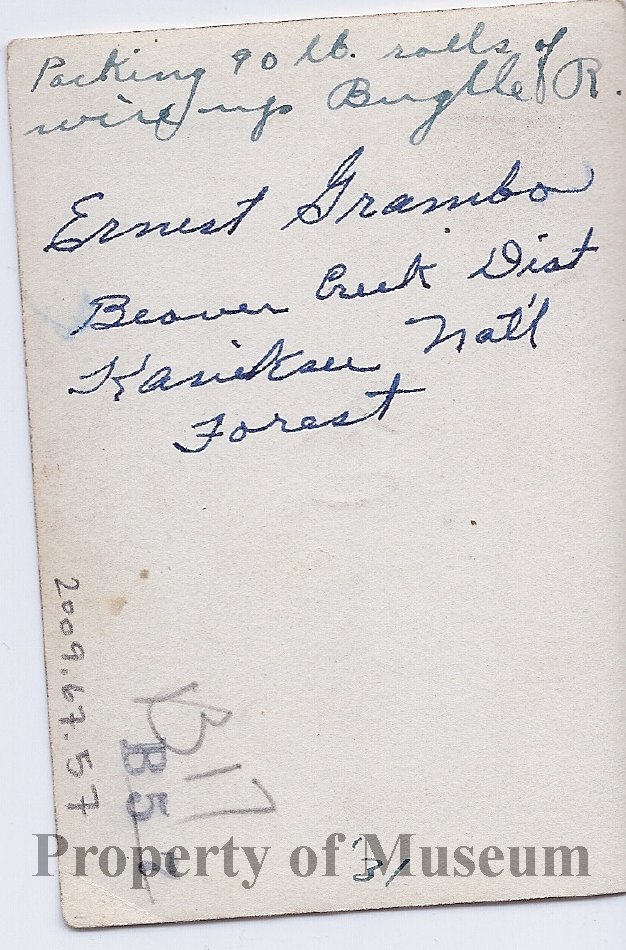 Packing 90 lb. rolls of
wire up Bugle R.
Ernest Grambo
Beaver Creek Dist
Kaniksu Nat'l
Forest
2009.67.57
B17
B5
'31
Property of Museum